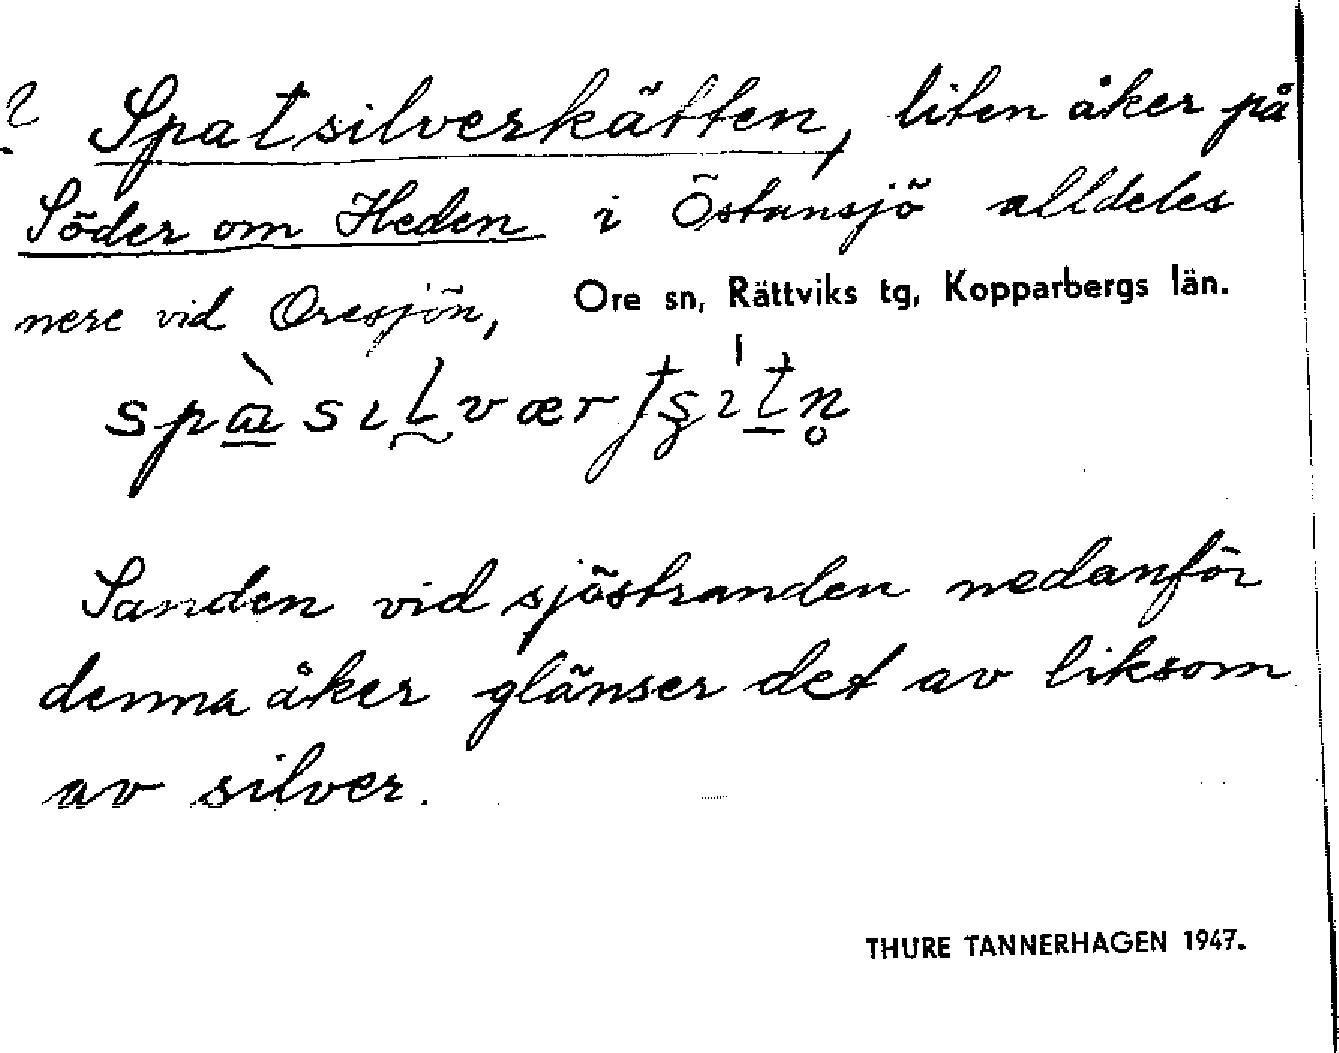 ? Spatsilverkätten, liten åker på
Söder om Heden i Östansjö alldeles
nere vid Oresjön, Ore sn, Rättviks tg, Kopparbergs län.
Sanden vid sjöstranden nedanför
denna åker glänser det av liksom
av silver.
THURE TANNERHAGEN 1947.